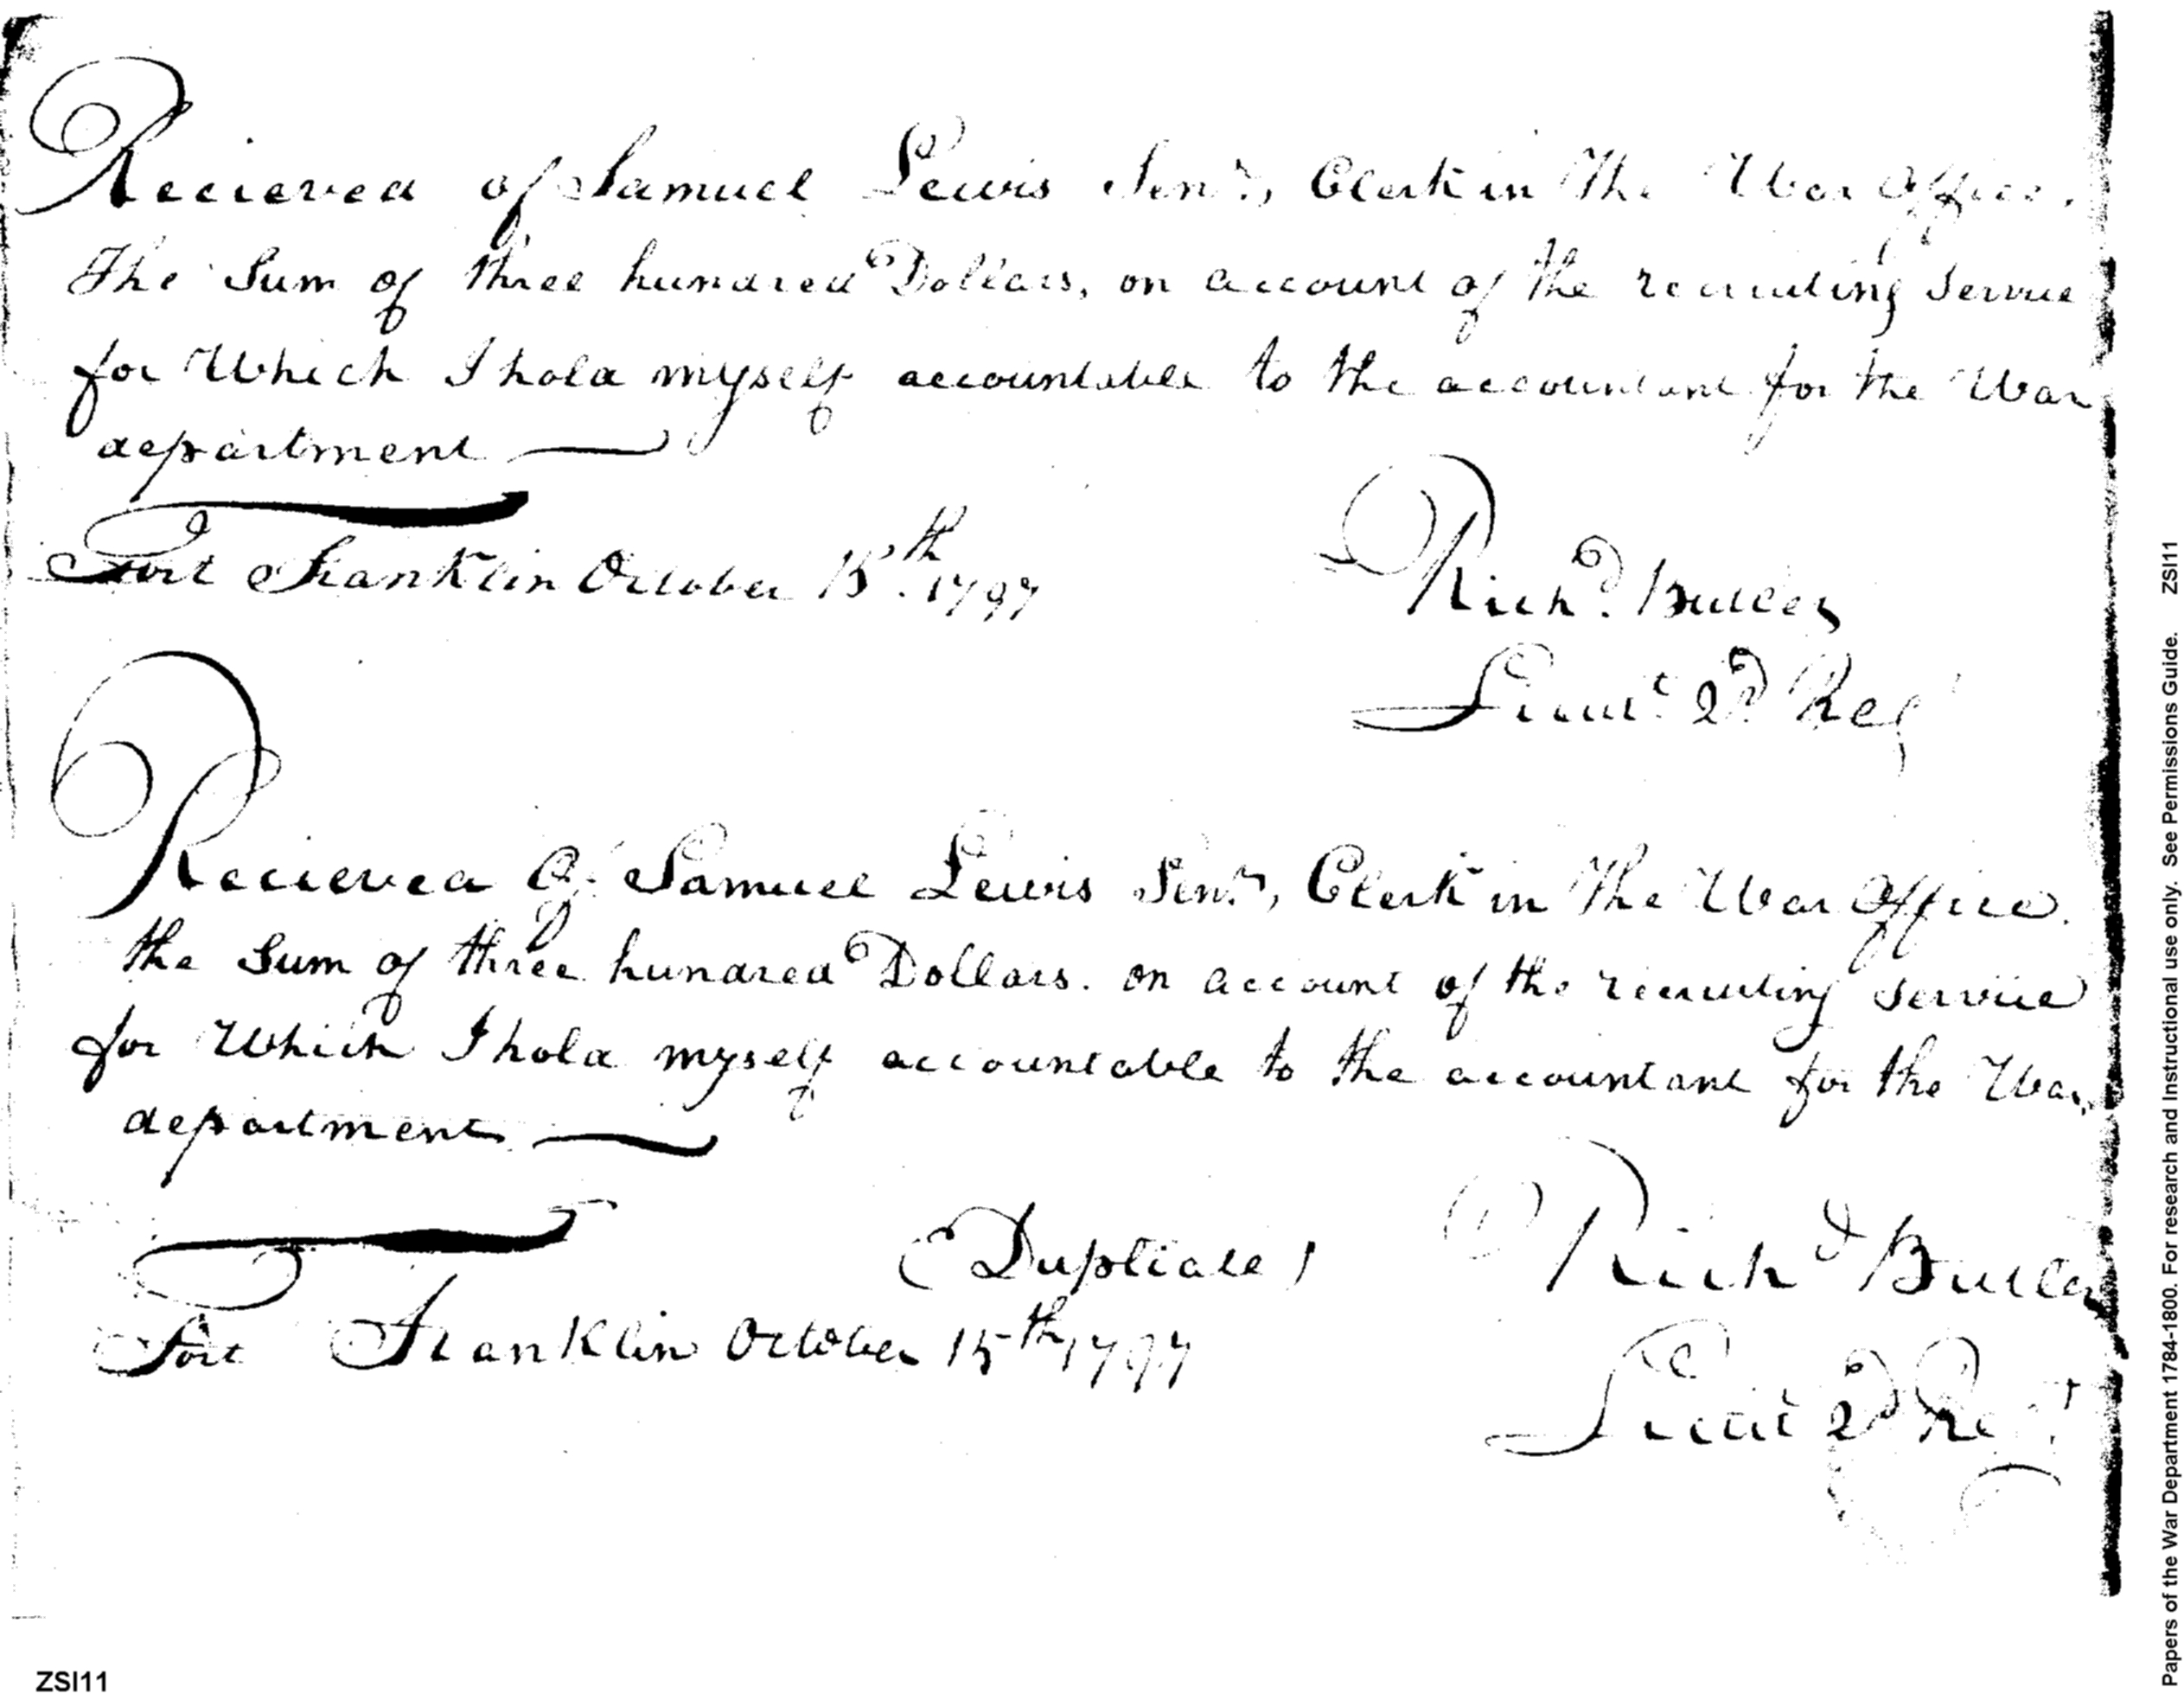 Recieved of Samuel Lewis Senr., Clerk in The War Office.
The Sum of three hundred Dollars, on account of the recruiting Service
for Which I hold myself accountable to the accountant for the War
department
Fort Franklin October 15th. 1797
Richd. Butler
Lieut. 2d. Reg
Recieved Of Samuel Lewis Senr., Clerk in The War Office.
the Sum of three hundred Dollars. on account of the recruiting Service
for Which I hold myself accountable to the accountant for the War
department
(Duplicate)
Richd Butler
Fort Franklin October 15th 1797
Lieut 2d Regt
ZSI11
Papers of the War Department 1784-1800. For research and Instructional use only. See Permissions Guide. ZSI11